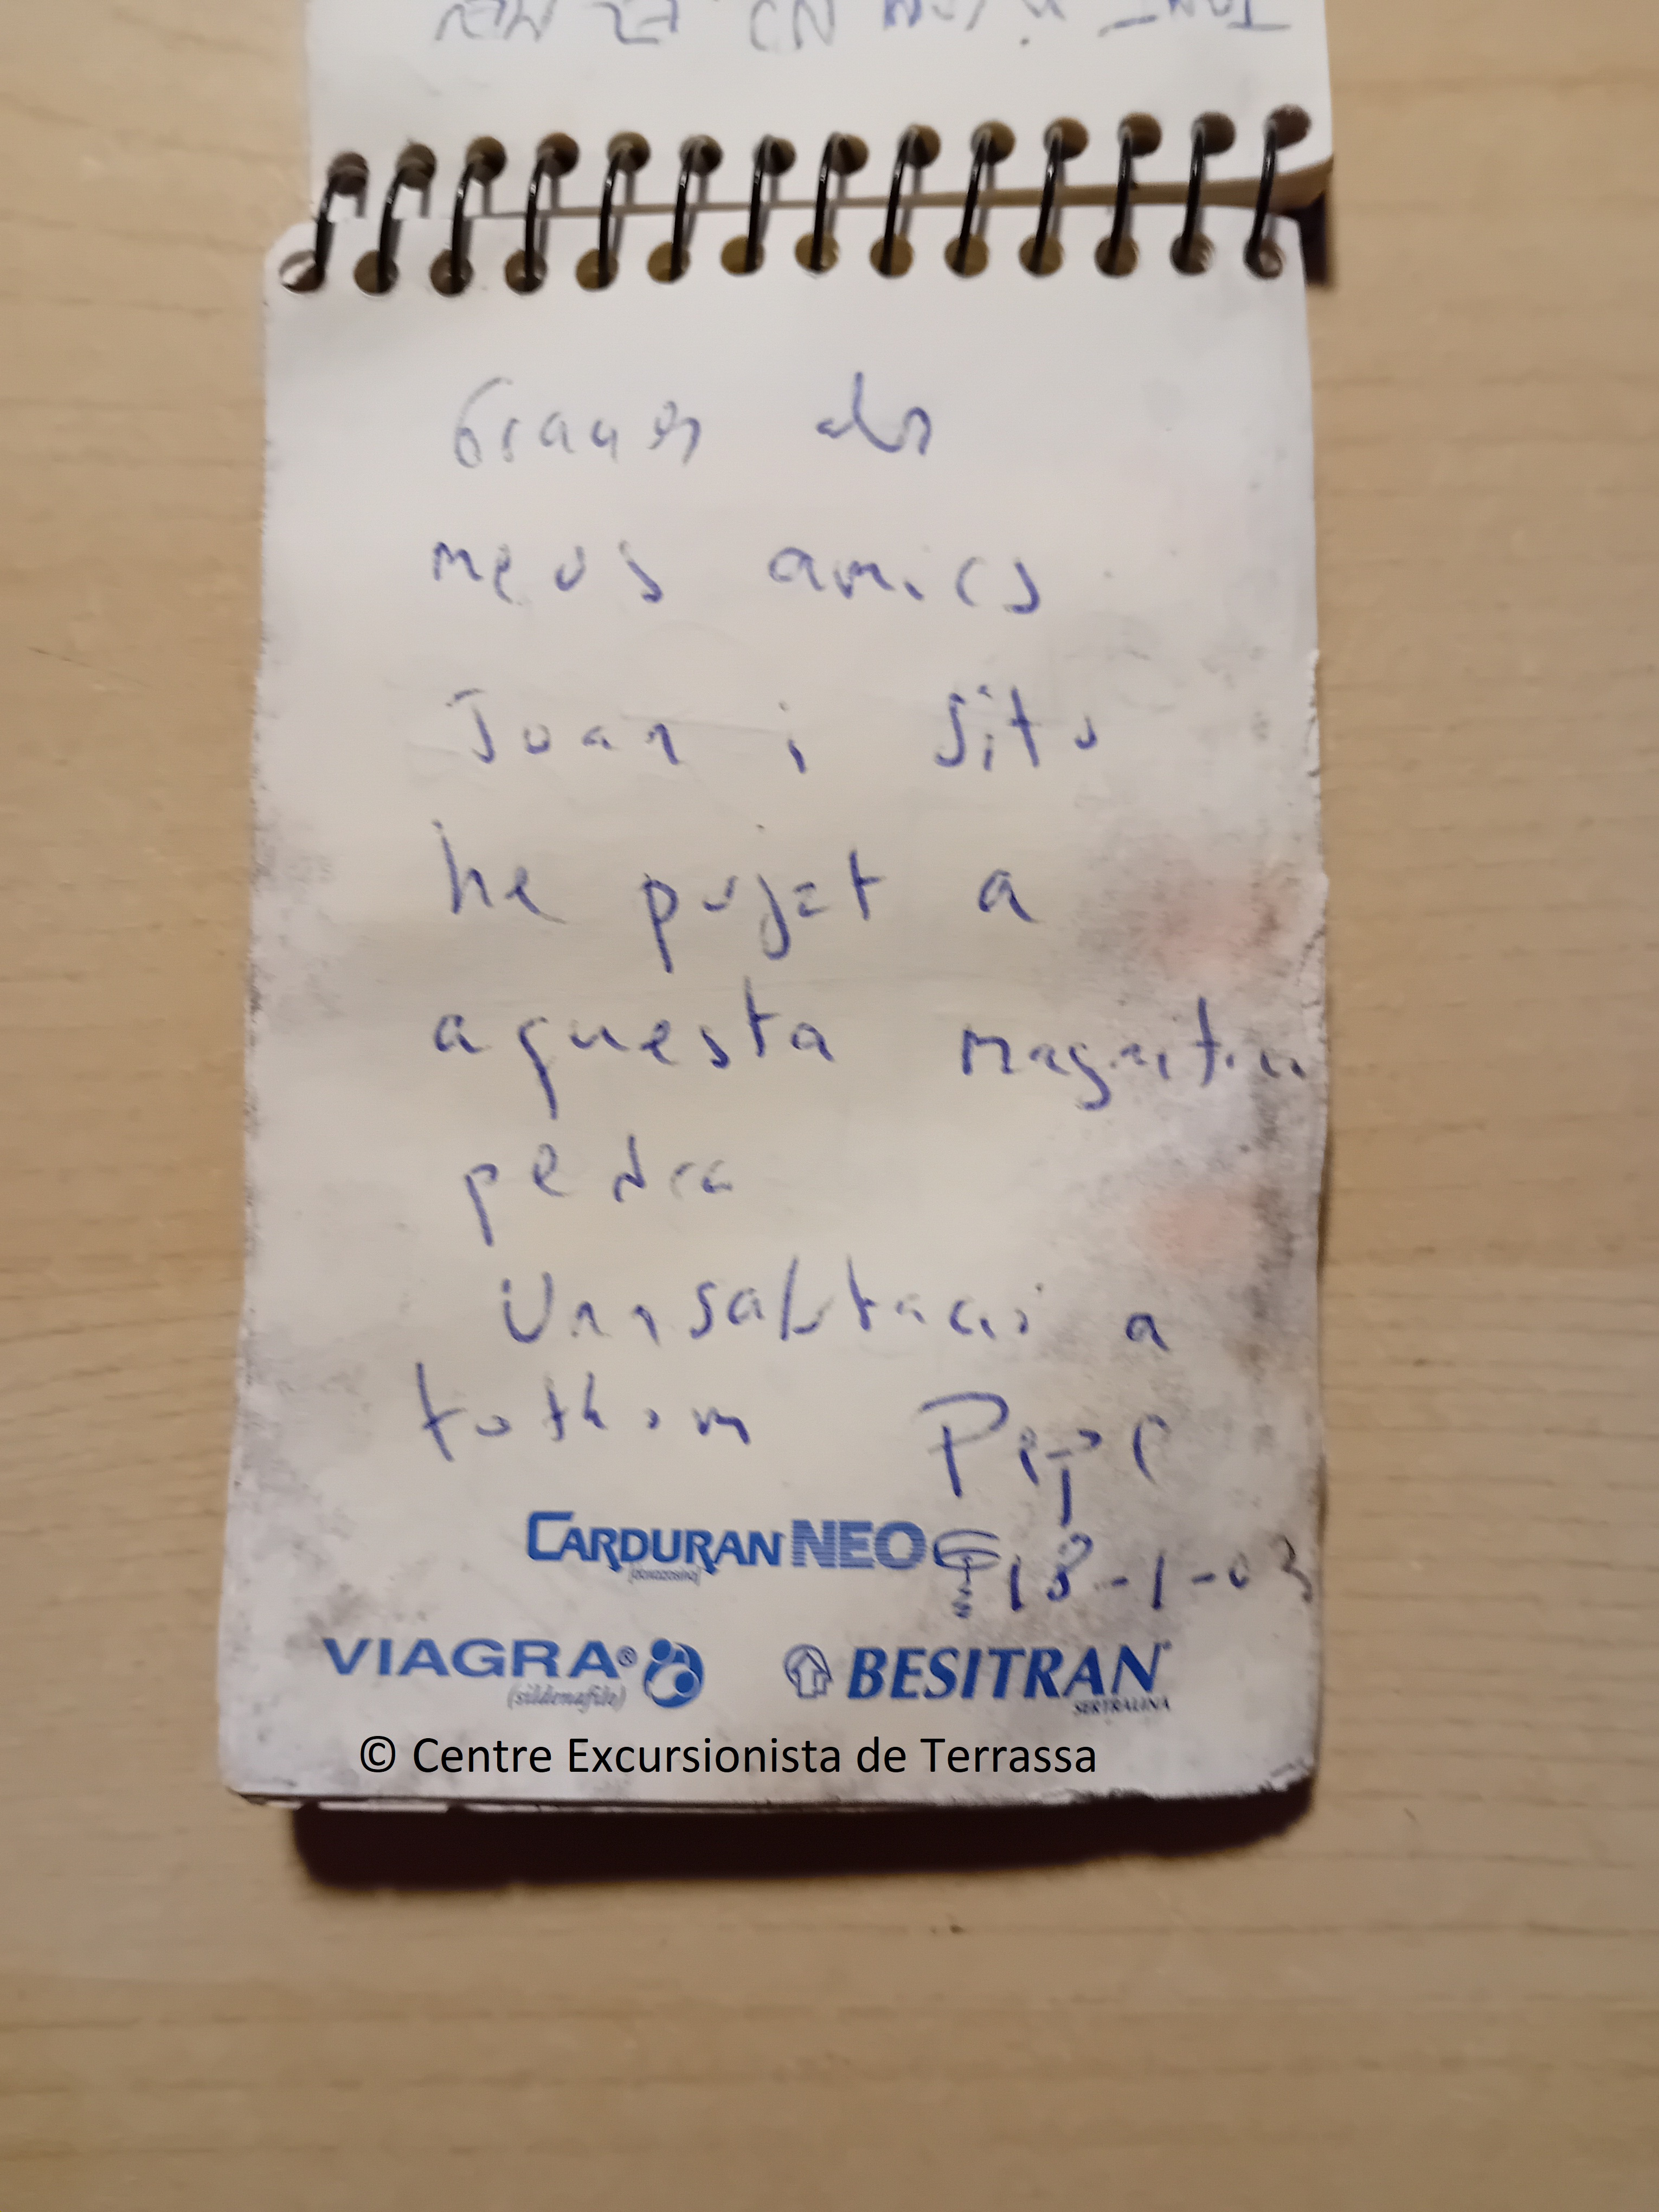 Gracies als
meus amics
Joan i Sito
he pujat a
aquesta magnifica
pedra
Una salutació a
tothom Pepe
CARDURAN NEO 18-1-03
(doxazosina)
VIAGRA® BESITRAN®
(sildenafilo) SERTRALINA
© Centre Excursionista de Terrassa